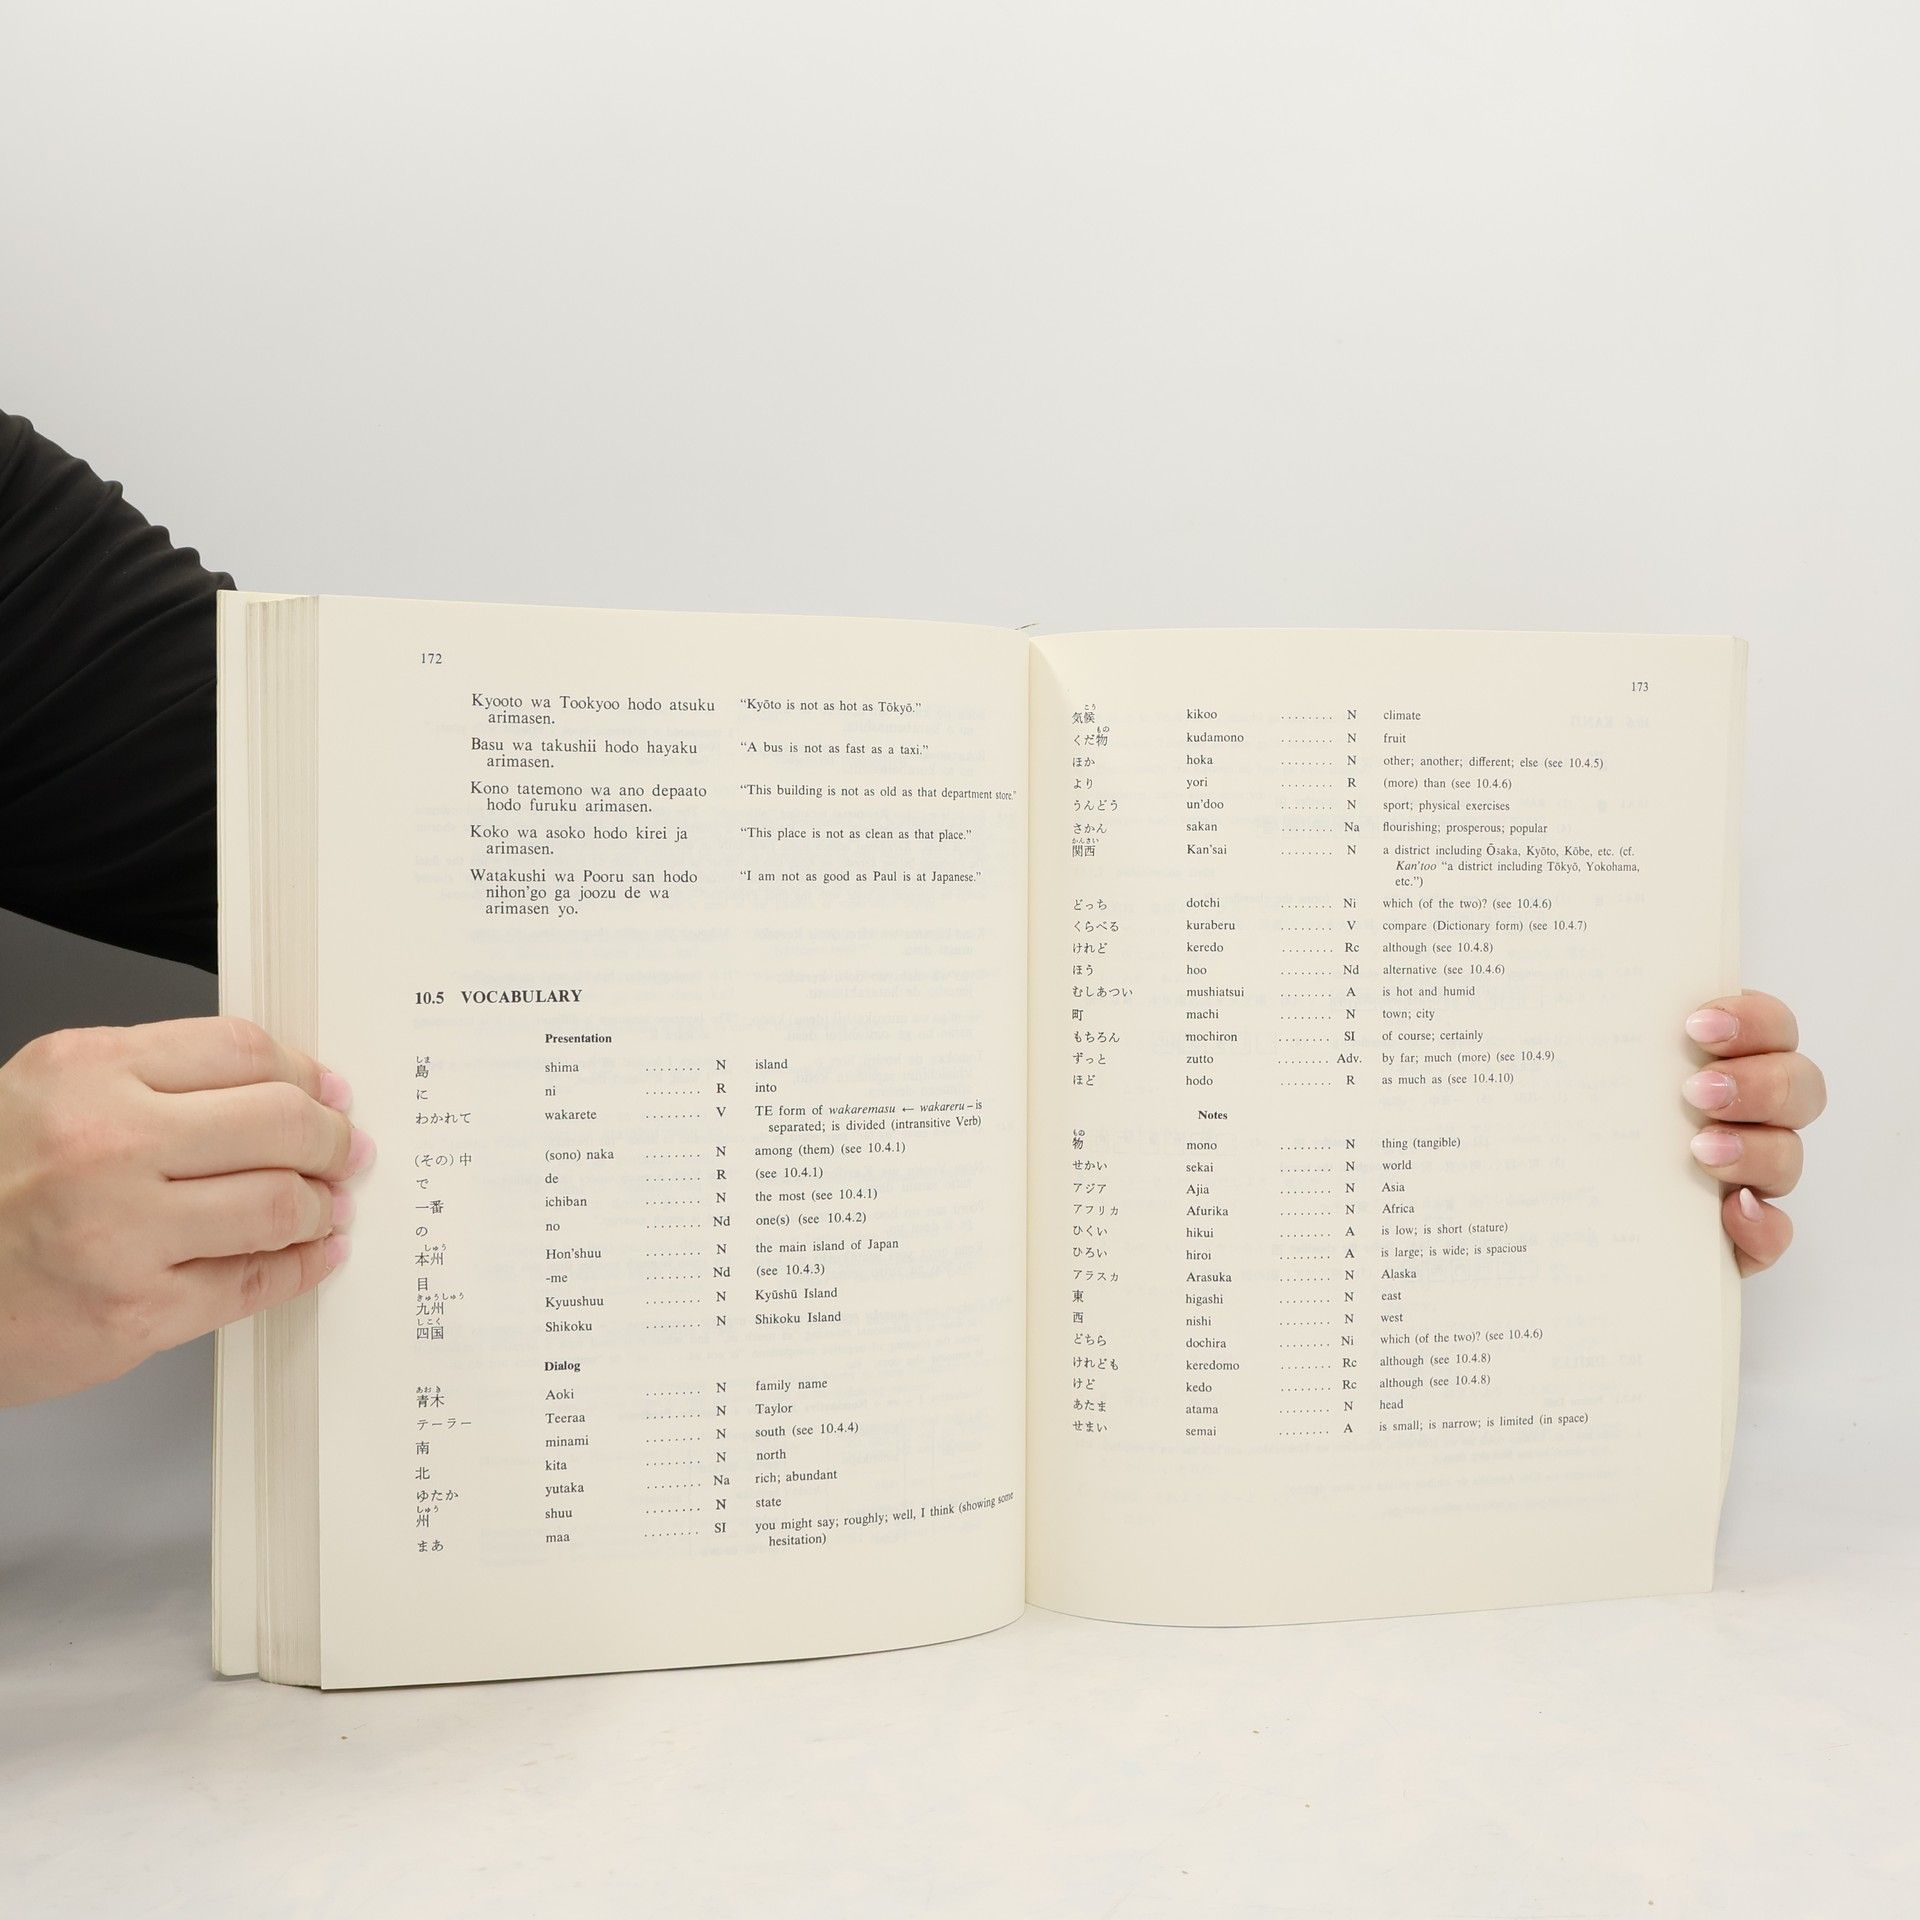 172
Kyooto wa Tookyoo hodo atsuku "Kyōto is not as hot as Tōkyō."
arimasen.
Basu wa takushii hodo hayaku "A bus is not as fast as a taxi."
arimasen.
Kono tatemono wa ano depaato "This building is not as old as that department store."
hodo furuku arimasen.
Koko wa asoko hodo kirei ja "This place is not as clean as that place."
arimasen.
Watakushi wa Pooru san hodo "I am not as good as Paul is at Japanese."
nihon'go ga joozu de wa
arimasen yo.
10.5 VOCABULARY
Presentation
しま
島 shima ........ N island
に ni ........ R into
わかれて wakarete ........ V TE form of wakaremasu ← wakareru – is
separated; is divided (intransitive Verb)
(その)中 (sono) naka ........ N among (them) (see 10.4.1)
で de ........ R (see 10.4.1)
一番 ichiban ........ N the most (see 10.4.1)
の no ........ Nd one(s) (see 10.4.2)
しゅう
本州 Hon'shuu ........ N the main island of Japan
目 -me ........ Nd (see 10.4.3)
きゅうしゅう
九州 Kyuushuu ........ N Kyūshū Island
しこく
四国 Shikoku ........ N Shikoku Island
Dialog
あおき
青木 Aoki ........ N family name
テーラー Teeraa ........ N Taylor
南 minami ........ N south (see 10.4.4)
北 kita ........ N north
ゆたか yutaka ........ Na rich; abundant
しゅう
州 shuu ........ N state
まあ maa ........ SI you might say; roughly; well, I think (showing some
hesitation)
173
こう
気候 kikoo ........ N climate
もの
くだ物 kudamono ........ N fruit
ほか hoka ........ N other; another; different; else (see 10.4.5)
より yori ........ R (more) than (see 10.4.6)
うんどう un'doo ........ N sport; physical exercises
さかん sakan ........ Na flourishing; prosperous; popular
かんさい
関西 Kan'sai ........ N a district including Ōsaka, Kyōto, Kōbe, etc. (cf.
Kan'too "a district including Tōkyō, Yokohama,
etc.")
どっち dotchi ........ Ni which (of the two)? (see 10.4.6)
くらべる kuraberu ........ V compare (Dictionary form) (see 10.4.7)
けれど keredo ........ Rc although (see 10.4.8)
ほう hoo ........ Nd alternative (see 10.4.6)
むしあつい mushiatsui ........ A is hot and humid
町 machi ........ N town; city
もちろん mochiron ........ SI of course; certainly
ずっと zutto ........ Adv. by far; much (more) (see 10.4.9)
ほど hodo ........ R as much as (see 10.4.10)
Notes
もの
物 mono ........ N thing (tangible)
せかい sekai ........ N world
アジア Ajia ........ N Asia
アフリカ Afurika ........ N Africa
ひくい hikui ........ A is low; is short (stature)
ひろい hiroi ........ A is large; is wide; is spacious
アラスカ Arasuka ........ N Alaska
東 higashi ........ N east
西 nishi ........ N west
どちら dochira ........ Ni which (of the two)? (see 10.4.6)
けれども keredomo ........ Rc although (see 10.4.8)
けど kedo ........ Rc although (see 10.4.8)
あたま atama ........ N head
せまい semai ........ A is small; is narrow; is limited (in space)